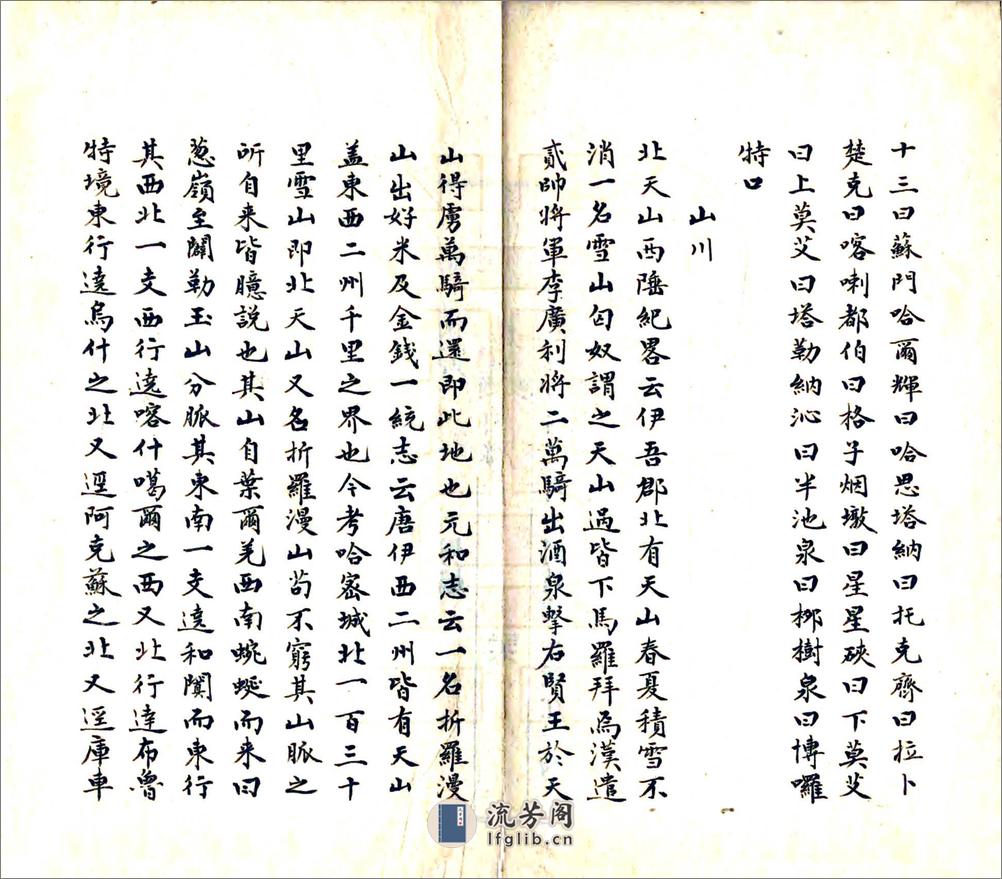 十三曰蘇門哈爾輝曰哈思塔納曰托克齊曰拉卜
楚克曰喀喇都伯曰格子烟墩曰星星硤曰下莫艾
曰上莫艾曰塔勒納沁曰半池泉曰栁樹泉曰博囉
特口
山川
北天山西陲紀畧云伊吾郡北有天山春夏積雪不
消一名雪山匈奴謂之天山過皆下馬羅拜為漢遣
貳帥将軍李廣利将二萬騎出酒泉擊右賢王於天
山得虜萬騎而還即此地也元和志云一名折羅漫
山出好米及金錢一統志云唐伊西二州皆有天山
盖東西二州千里之界也今考哈密城北一百三十
里雪山即北天山又名折羅漫山苟不窮其山脈之
所自来皆臆説也其山自葉爾羌西南蜿蜒而来曰
葱嶺至闢勒玉山分脈其東南一支達和闐而東行
其西北一支西行達喀什噶爾之西又北行達布魯
特境東行達烏什之北又逕阿克蘇之北又逕庫車
流芳阁
lfglib.cn